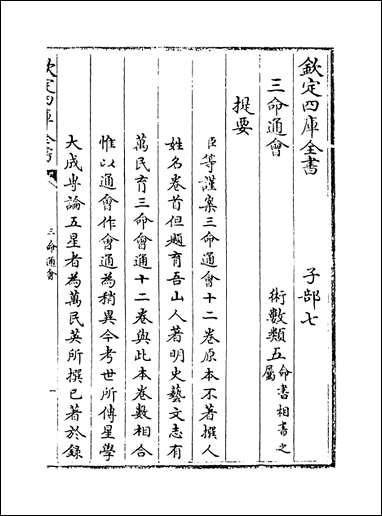 欽定四庫全書　子部七
三命通會　術數類五命書相書之屬
提要
臣等謹案三命通會十二卷原本不著撰人
姓名卷首但題育吾山人著明史藝文志有
萬民育三命會通十二卷與此本卷數相合
惟以通會作會通為稍異今考世所傳星學
大成専論五星者為萬民英所撰已著於錄
欽定四庫全書
三命通會
一